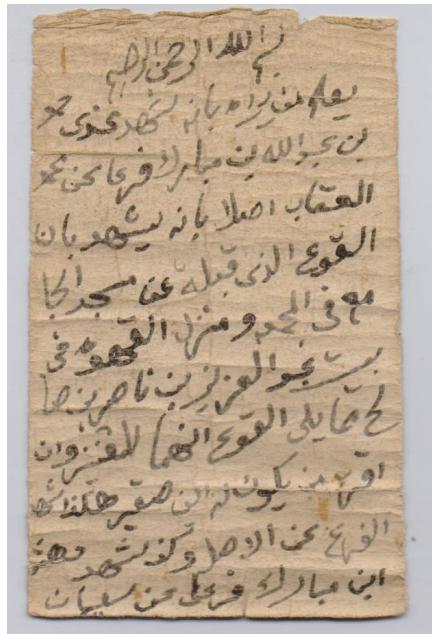 بسم الله الرحمن الرحيم
يعلم من يراه بانه شهد عندي محمد
بن عبدالله بن مبارك فرعا عن محمد
العقاب اصلا بانه يشهد بان
القوع الذي قبلة عن مسجد الجا
مع في المجمعه ومنزل القهوه في
بيت عبدالعزيز بن ناصر بن صا
لح مما يلي القوع انهما
اقرب من يكون له ابن صقير هكذا شهد
الفرع عن الاصل وكذ شهد
ابن مبارك فرعا عن سليمان